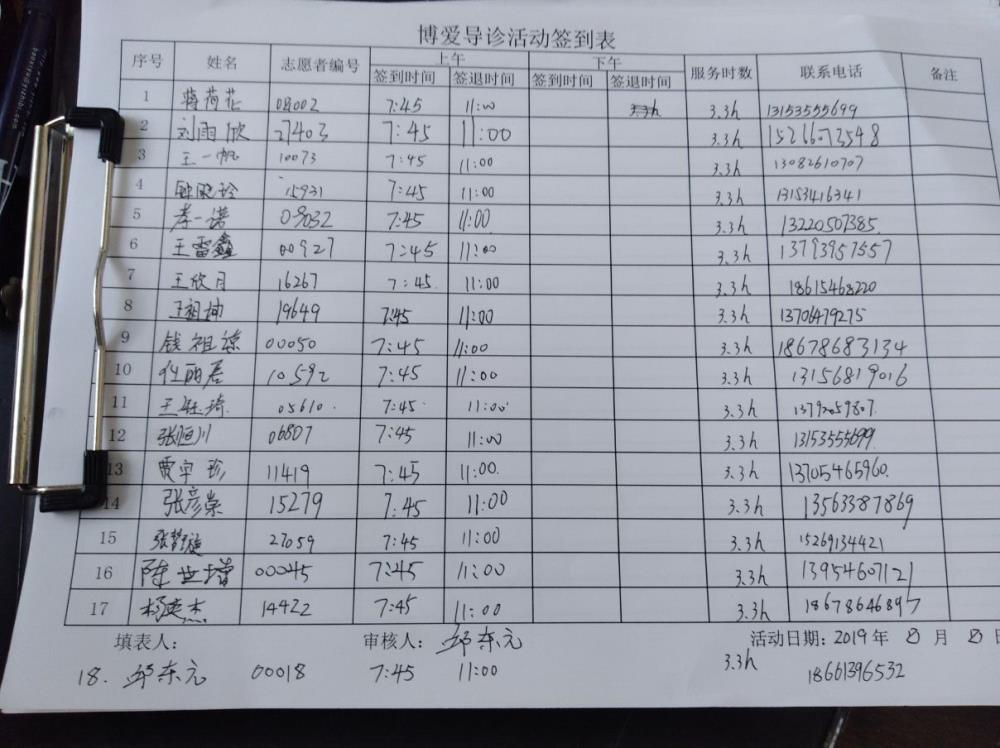 博爱导诊活动签到表
序号 姓名 志愿者编号 上午 下午 服务时数 联系电话 备注
签到时间 签退时间 签到时间 签退时间
1 蒋荷花 08002 7:45 11:00 3.3h 13153555699
2 刘雨欣 27403 7:45 11:00 3.3h 15266073548
3 王一帆 10073 7:45 11:00 3.3h 13082610707
4 钟晓玲 15931 7:45 11:00 3.3h 13153416341
5 李一诺 09032 7:45 11:00 3.3h 13220507385
6 王雷鑫 00927 7:45 11:00 3.3h 13793957557
7 王欣月 16267 7:45 11:00 3.3h 18615468220
8 王祖坤 19649 7:45 11:00 3.3h 13706479275
9 钱祖琼 00050 7:45 11:00 3.3h 18678683134
10 任丽君 10592 7:45 11:00 3.3h 13156819016
11 王钰琦 05610 7:45 11:00 3.3h 13792059807
12 张恒川 06807 7:45 11:00 3.3h 13153555699
13 贾宇珍 11419 7:45 11:00 3.3h 13705465960
14 张彦荣 15279 7:45 11:00 3.3h 13563387869
15 27059 7:45 11:00 3.3h 15269134421
16 陈世增 00045 7:45 11:00 3.3h 13954607121
17 杨建杰 14422 7:45 11:00 3.3h 18678646897
填表人: 审核人: 邱东元 活动日期: 2019年 8月 8日
18. 邱东元 00018 7:45 11:00 3.3h 18661396532